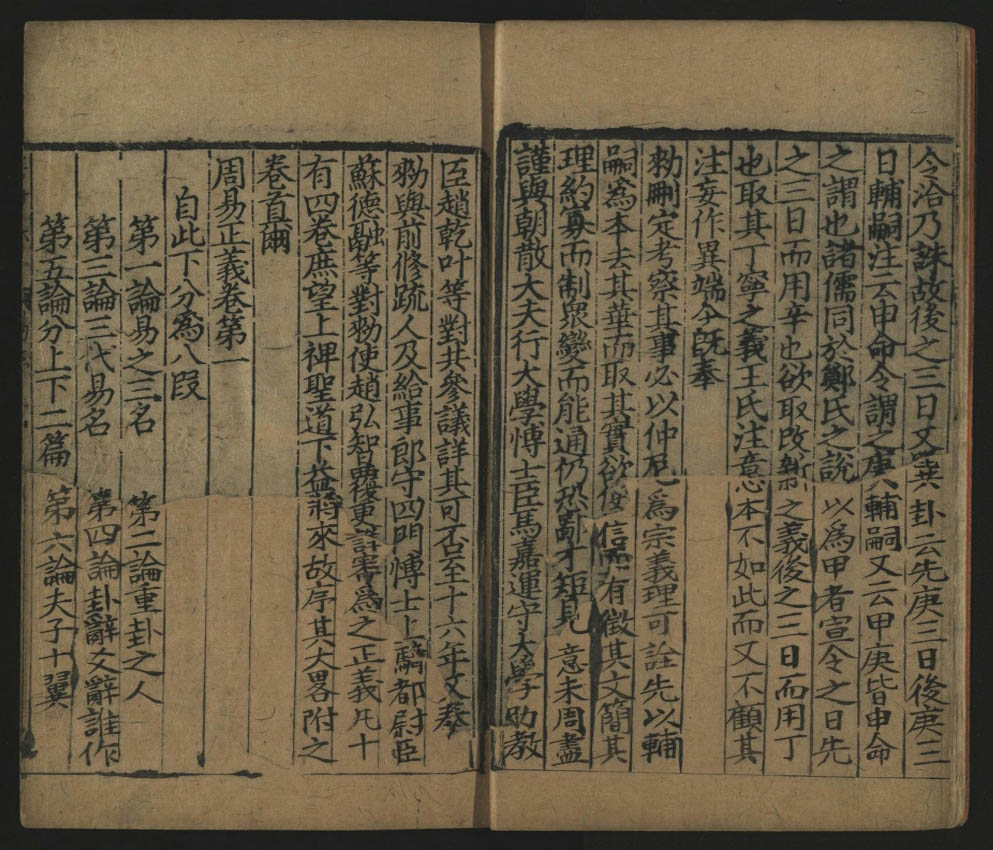 令洽乃誅故後之三日又巽卦云先庚三日後庚三
日輔嗣注云申命令謂之庚輔嗣又云甲庚皆申命
之謂也諸儒同於鄭氏之說以爲甲者宣令之日先
之三日而用辛也欲取改新之義後之三日而用丁
也取其丁寧之義王氏注意本不如此而又不顧其
注妄作異端今旣奉
勑刪定考察其事必以仲尼爲宗義理可詮先以輔
嗣爲本去其華而取其實欲使信而有徵其文簡其
理約寡而制眾變而能通仍恐鄙才短見意未周盡
謹與朝散大夫行大學博士臣馬嘉運守大學助教
臣趙乾叶等對共參議詳其可否至十六年又奉
勑與前修䟽人及給事郎守四門博士上騎都尉臣
蘇德融等對勑使趙弘智覆更詳審爲之正義凡十
有四卷庶望上裨聖道下益將來故序其大畧附之
卷首爾
周易正義卷第一
自此下分爲八叚
第一論易之三名 第二論重卦之人
第三論三代易名 第四論卦辭爻辭誰作
第五論分上下二篇 第六論夫子十翼